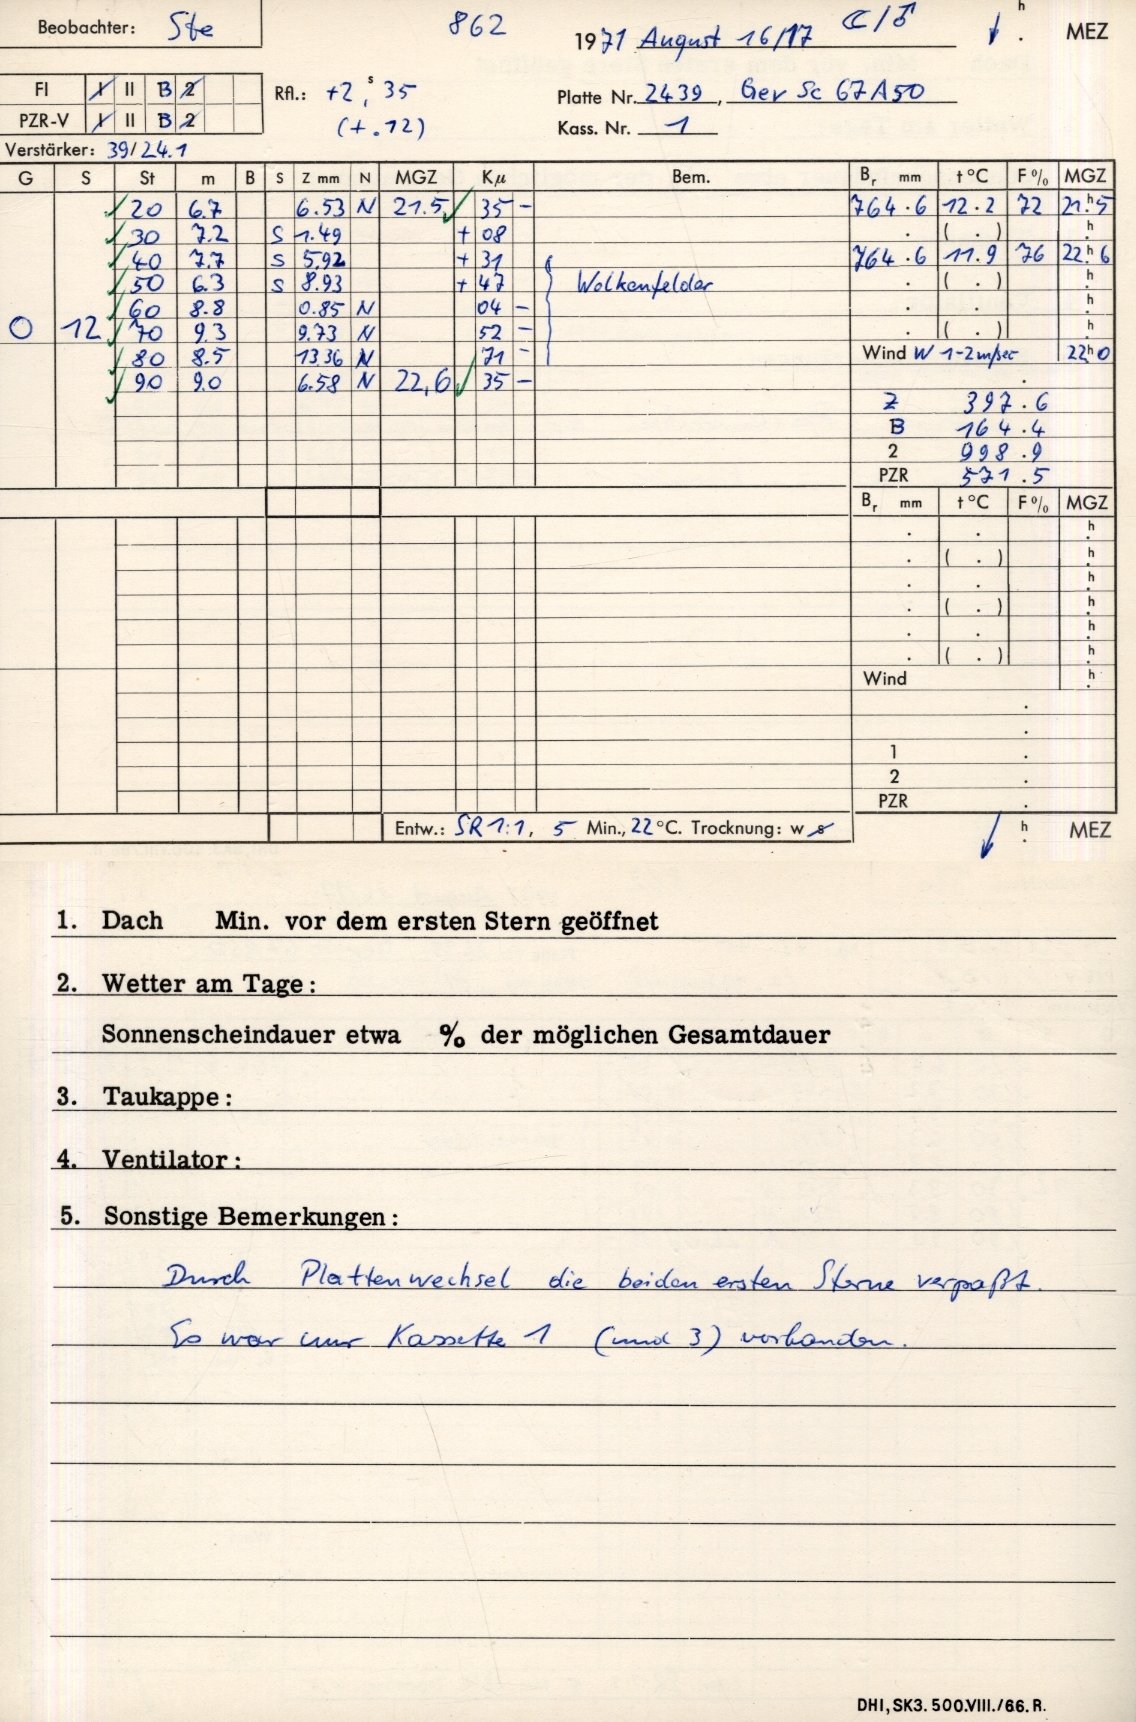 Beobachter: Ste 862 1971 August 16/17 ☾/♂ h . MEZ
FI I II B 2 Rfl.: +2,s35 Platte Nr. 2439, Gev Sc 67A50
PZR-V I II B 2 (+.12) Kass. Nr. 1
Verstärker: 39/24.1
G S St m B S Z mm N MGZ Kμ Bem. Br mm t°C F% MGZ
20 6.7 6.53 N 21.5 35 – 764.6 12.2 72 21.h5
30 7.2 S 1.49 + 08 . ( . ) h.
40 7.7 S 5.92 + 31 764.6 11.9 76 22.h6
50 6.3 S 8.93 + 47 Wolkenfelder . ( . ) h.
60 8.8 0.85 N 04 – . . h.
0 12 70 9.3 9.73 N 52 – . ( . ) h.
80 8.5 13 36 N 71 – Wind W 1-2m/sec 22h0
90 9.0 6.58 N 22,6 35 – .
Z 397.6
B 164.4
2 998.9
PZR 571.5
Br mm t°C F% MGZ
. . h.
. ( . ) h.
. . h.
. ( . ) h.
. . h.
. ( . ) h.
Wind h.
.
.
1 .
2 .
PZR .
Entw.: SR 1:1, 5 Min., 22°C. Trocknung: w s h . MEZ
1. Dach Min. vor dem ersten Stern geöffnet
2. Wetter am Tage:
Sonnenscheindauer etwa % der möglichen Gesamtdauer
3. Taukappe:
4. Ventilator:
5. Sonstige Bemerkungen:
Durch Plattenwechsel die beiden ersten Sterne verpaßt.
Es war nur Kassette 1 (und 3) vorhanden.
DHI, SK3. 500.VIII./66. R.